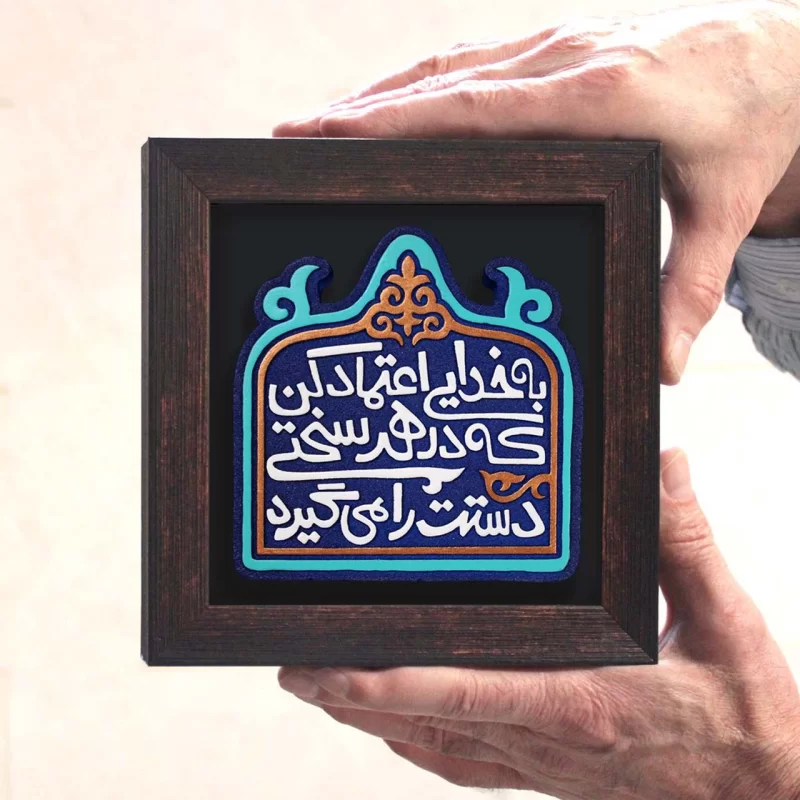 به خدایی اعتماد کن
که در هر سختی
دستت را می گیرد